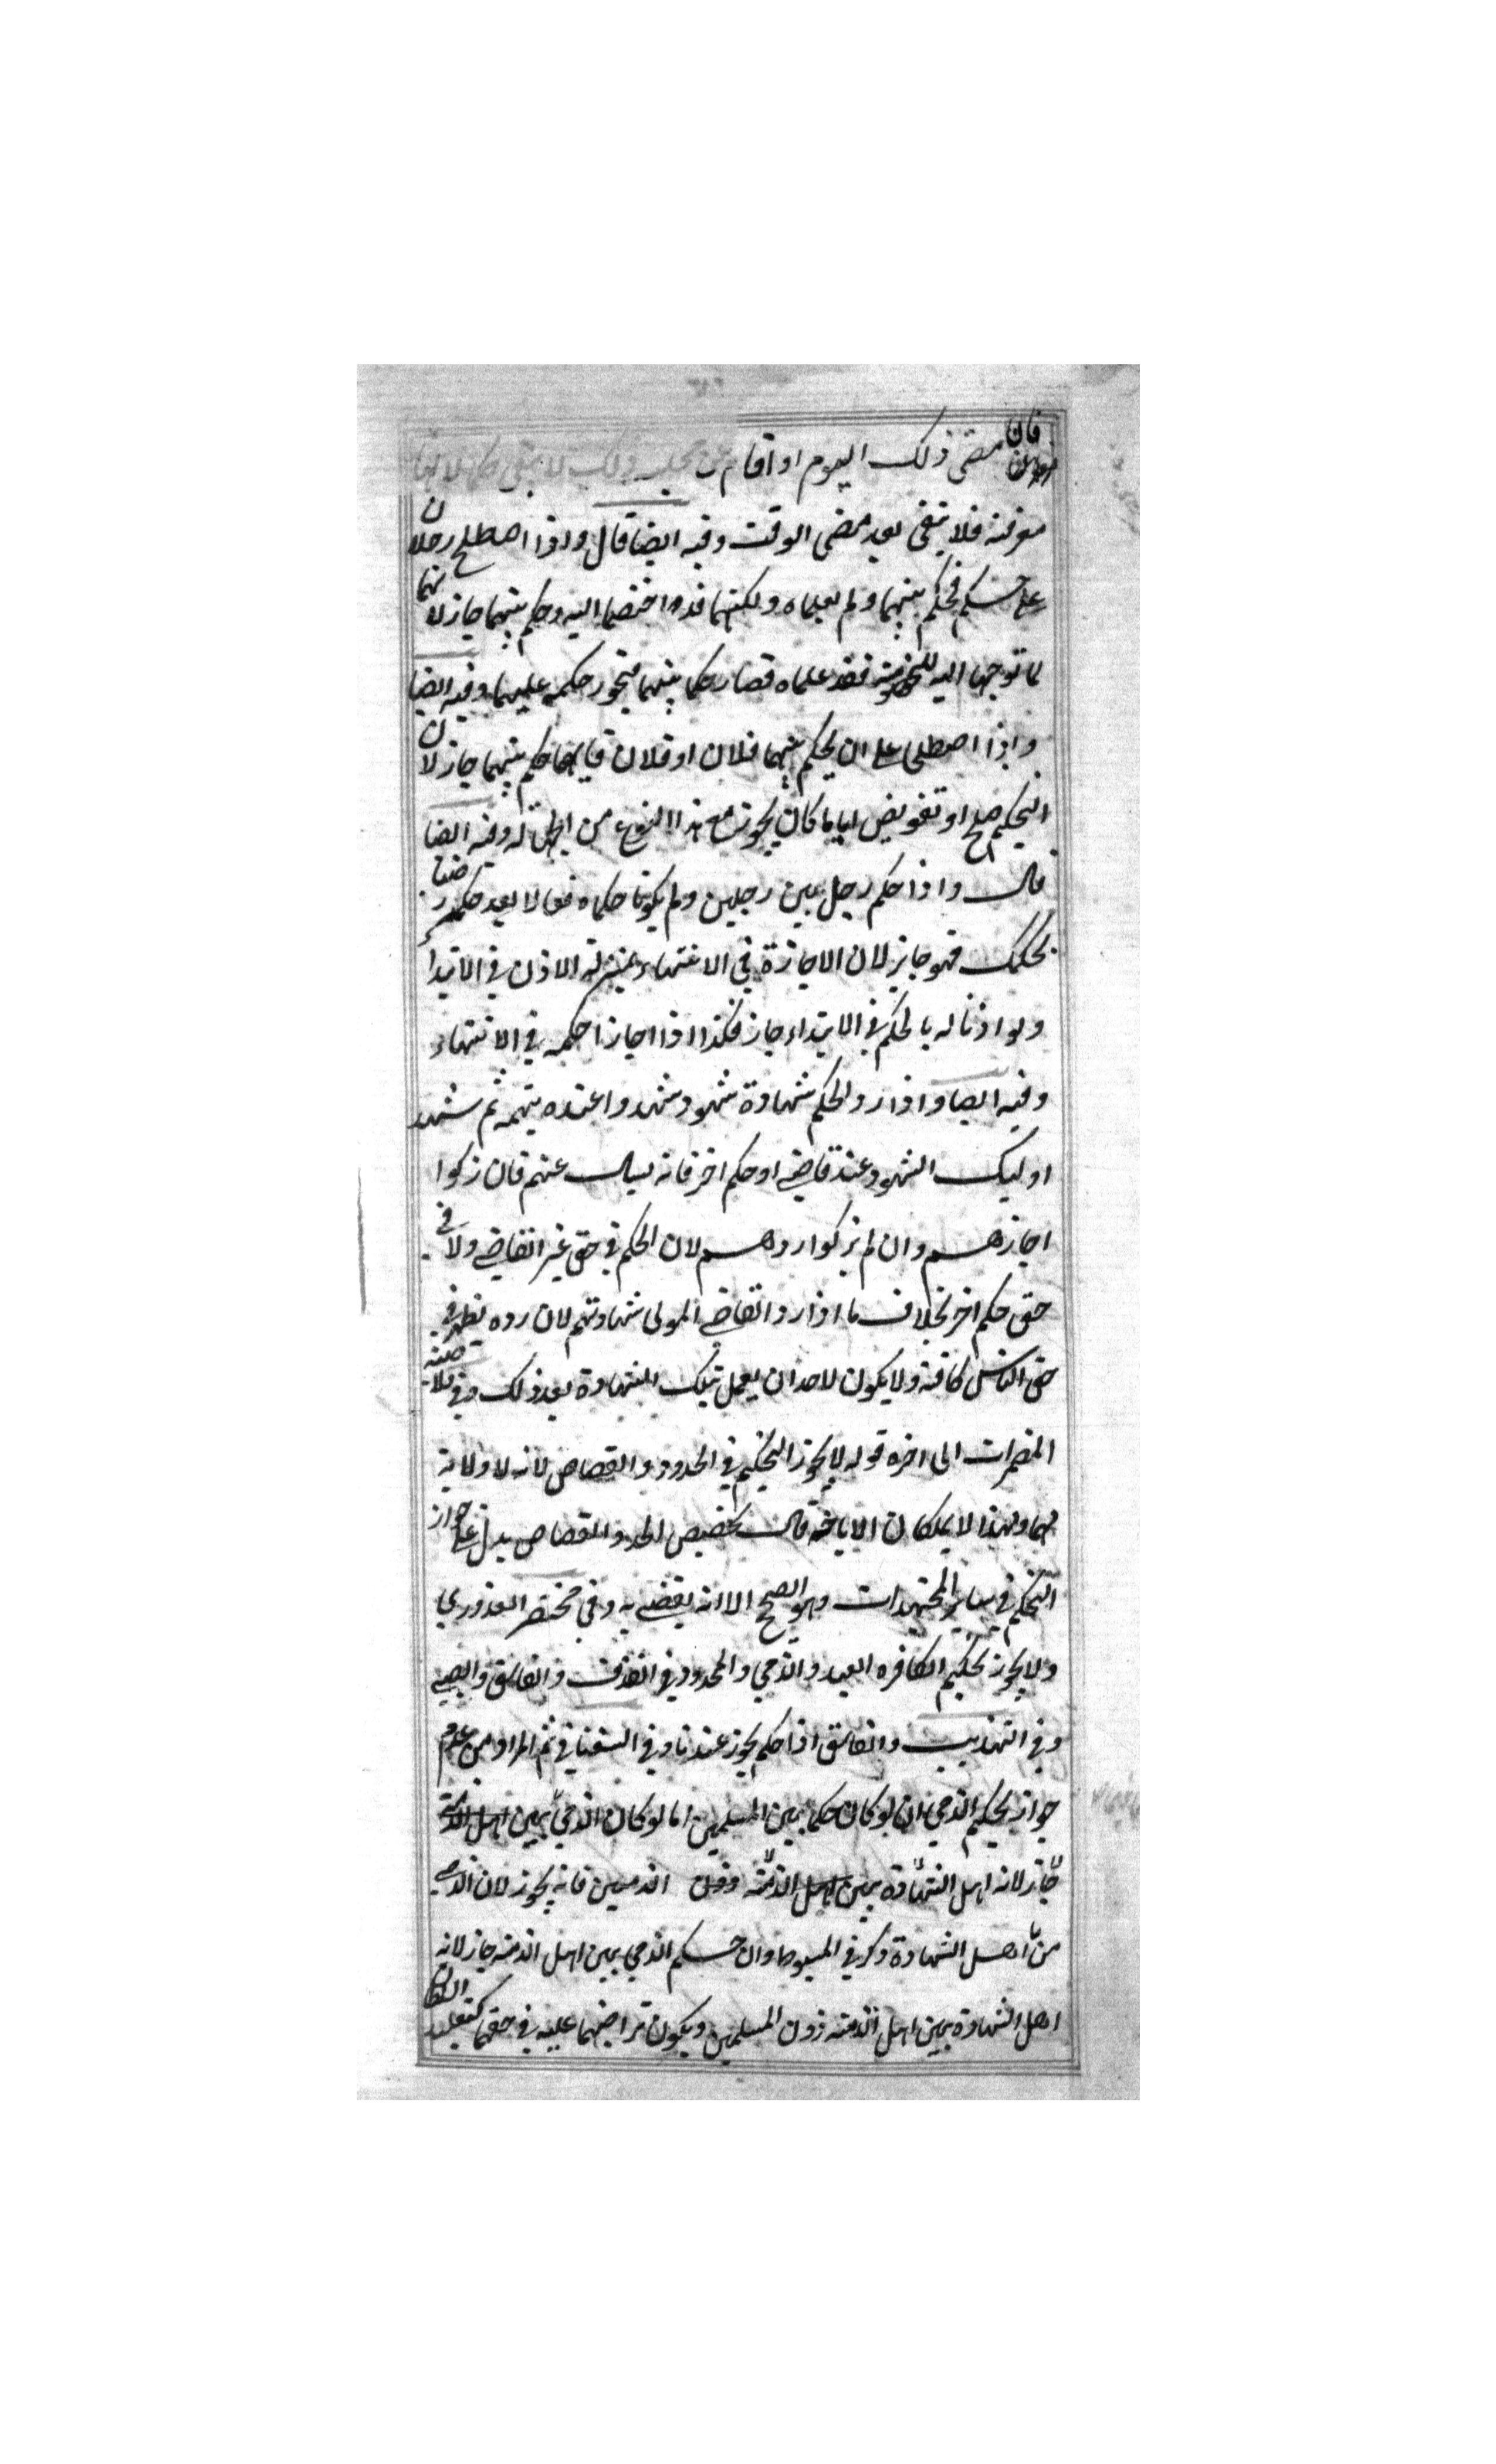 فان مضى ذلك اليوم او اقام عن مجلسه ذلك لا يبقى حكما لانها
موقتة فلا يبقى بعد مضى الوقت وفيه ايضا قال واذا اصطلح رجلان
على حكم فحكم بينهما ولم يعلماه ولكنهما قد اختصما اليه وحكم بينهما جاز لانهما
لما توجها اليه للخصومة فقد علماه فصار حكما بينهما فيجوز حكمه عليهما وفيه ايضا
واذا اصطلحا على ان يحكم بينهما فلان او فلان فايهما حكم بينهما جاز لان
التحكيم صلح او تفويض اياما كان يجوز مع هذا النوع من الجهالة وفيه ايضا
قال واذا حكم رجل بين رجلين ولم يكونا حكماه فقالا بعد حكمه رضينا
بحكمك فهو جايز لان الاجازة في الانتهاء بمنزلة الاذن في الابتدا
ولو اذنا له بالحكم في الابتداء جاز فكذا اذا اجازا حكمه في الانتهاء
وفيه ايضا واذا رد الحكم شهادة شهود شهدوا عنده بتهمة ثم شهد
اوليك الشهود عند قاضي او حكم اخر فانه يسال عنهم فان زكوا
اجازهم وان لم يزكوا ردهم لان الحكم في حق غير القاضي ولا في
حق حكم اخر بخلاف ما اذا رد القاضي المولى شهادتهم لان رده يظهر في
حق الناس كافة ولا يكون لاحد ان يعمل بتلك الشهادة بعد ذلك وفي
المضمرات الى اخره قوله لا يجوز التحكيم في الحدود والقصاص لانه لا ولاية
لهما ولهذا لا يملكان الاباحة قال تخصيص الحد والقصاص يدل على جواز
التحكيم في ساير المجتهدات وهو الصحيح الا انه يقضي به وفي مختصر القدوري
ولا يجوز تحكيم الكافره العبد والذمي والمحدود في القذف والفاسق والصبي
وفي التهذيب والفاسق اذا حكم يجوز عندنا وفي السغناقي ثم المراد من عدم
جواز تحكيم الذمي ان لو كان حكما بين المسلمين اما لو كان الذمي بين اهل الذمة
جاز لانه اهل الشهادة بين اهل الذمة الذميين فانه يجوز لان الذمي
من اهل الشهادة ذكر في المبسوط وان حكم الذمي بين اهل الذمة جاز لانه
اهل الشهادة بين اهل الذمة دون المسلمين ويكون تراضيهما عليه في حقهما كتقليد السلطان